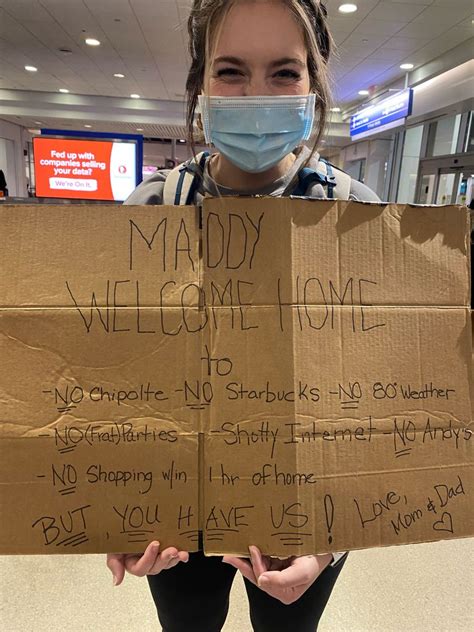 Fed up with
companies selling
your data?
We're On It.
MADDY
WELCOME HOME
to
-NO Chipolte -NO Starbucks -NO 80° Weather
-NO (Frat) Parties -Shitty Internet -NO Andy's
-NO Shopping w/in 1 hr of home
BUT, YOU HAVE US! Love,
Mom & Dad